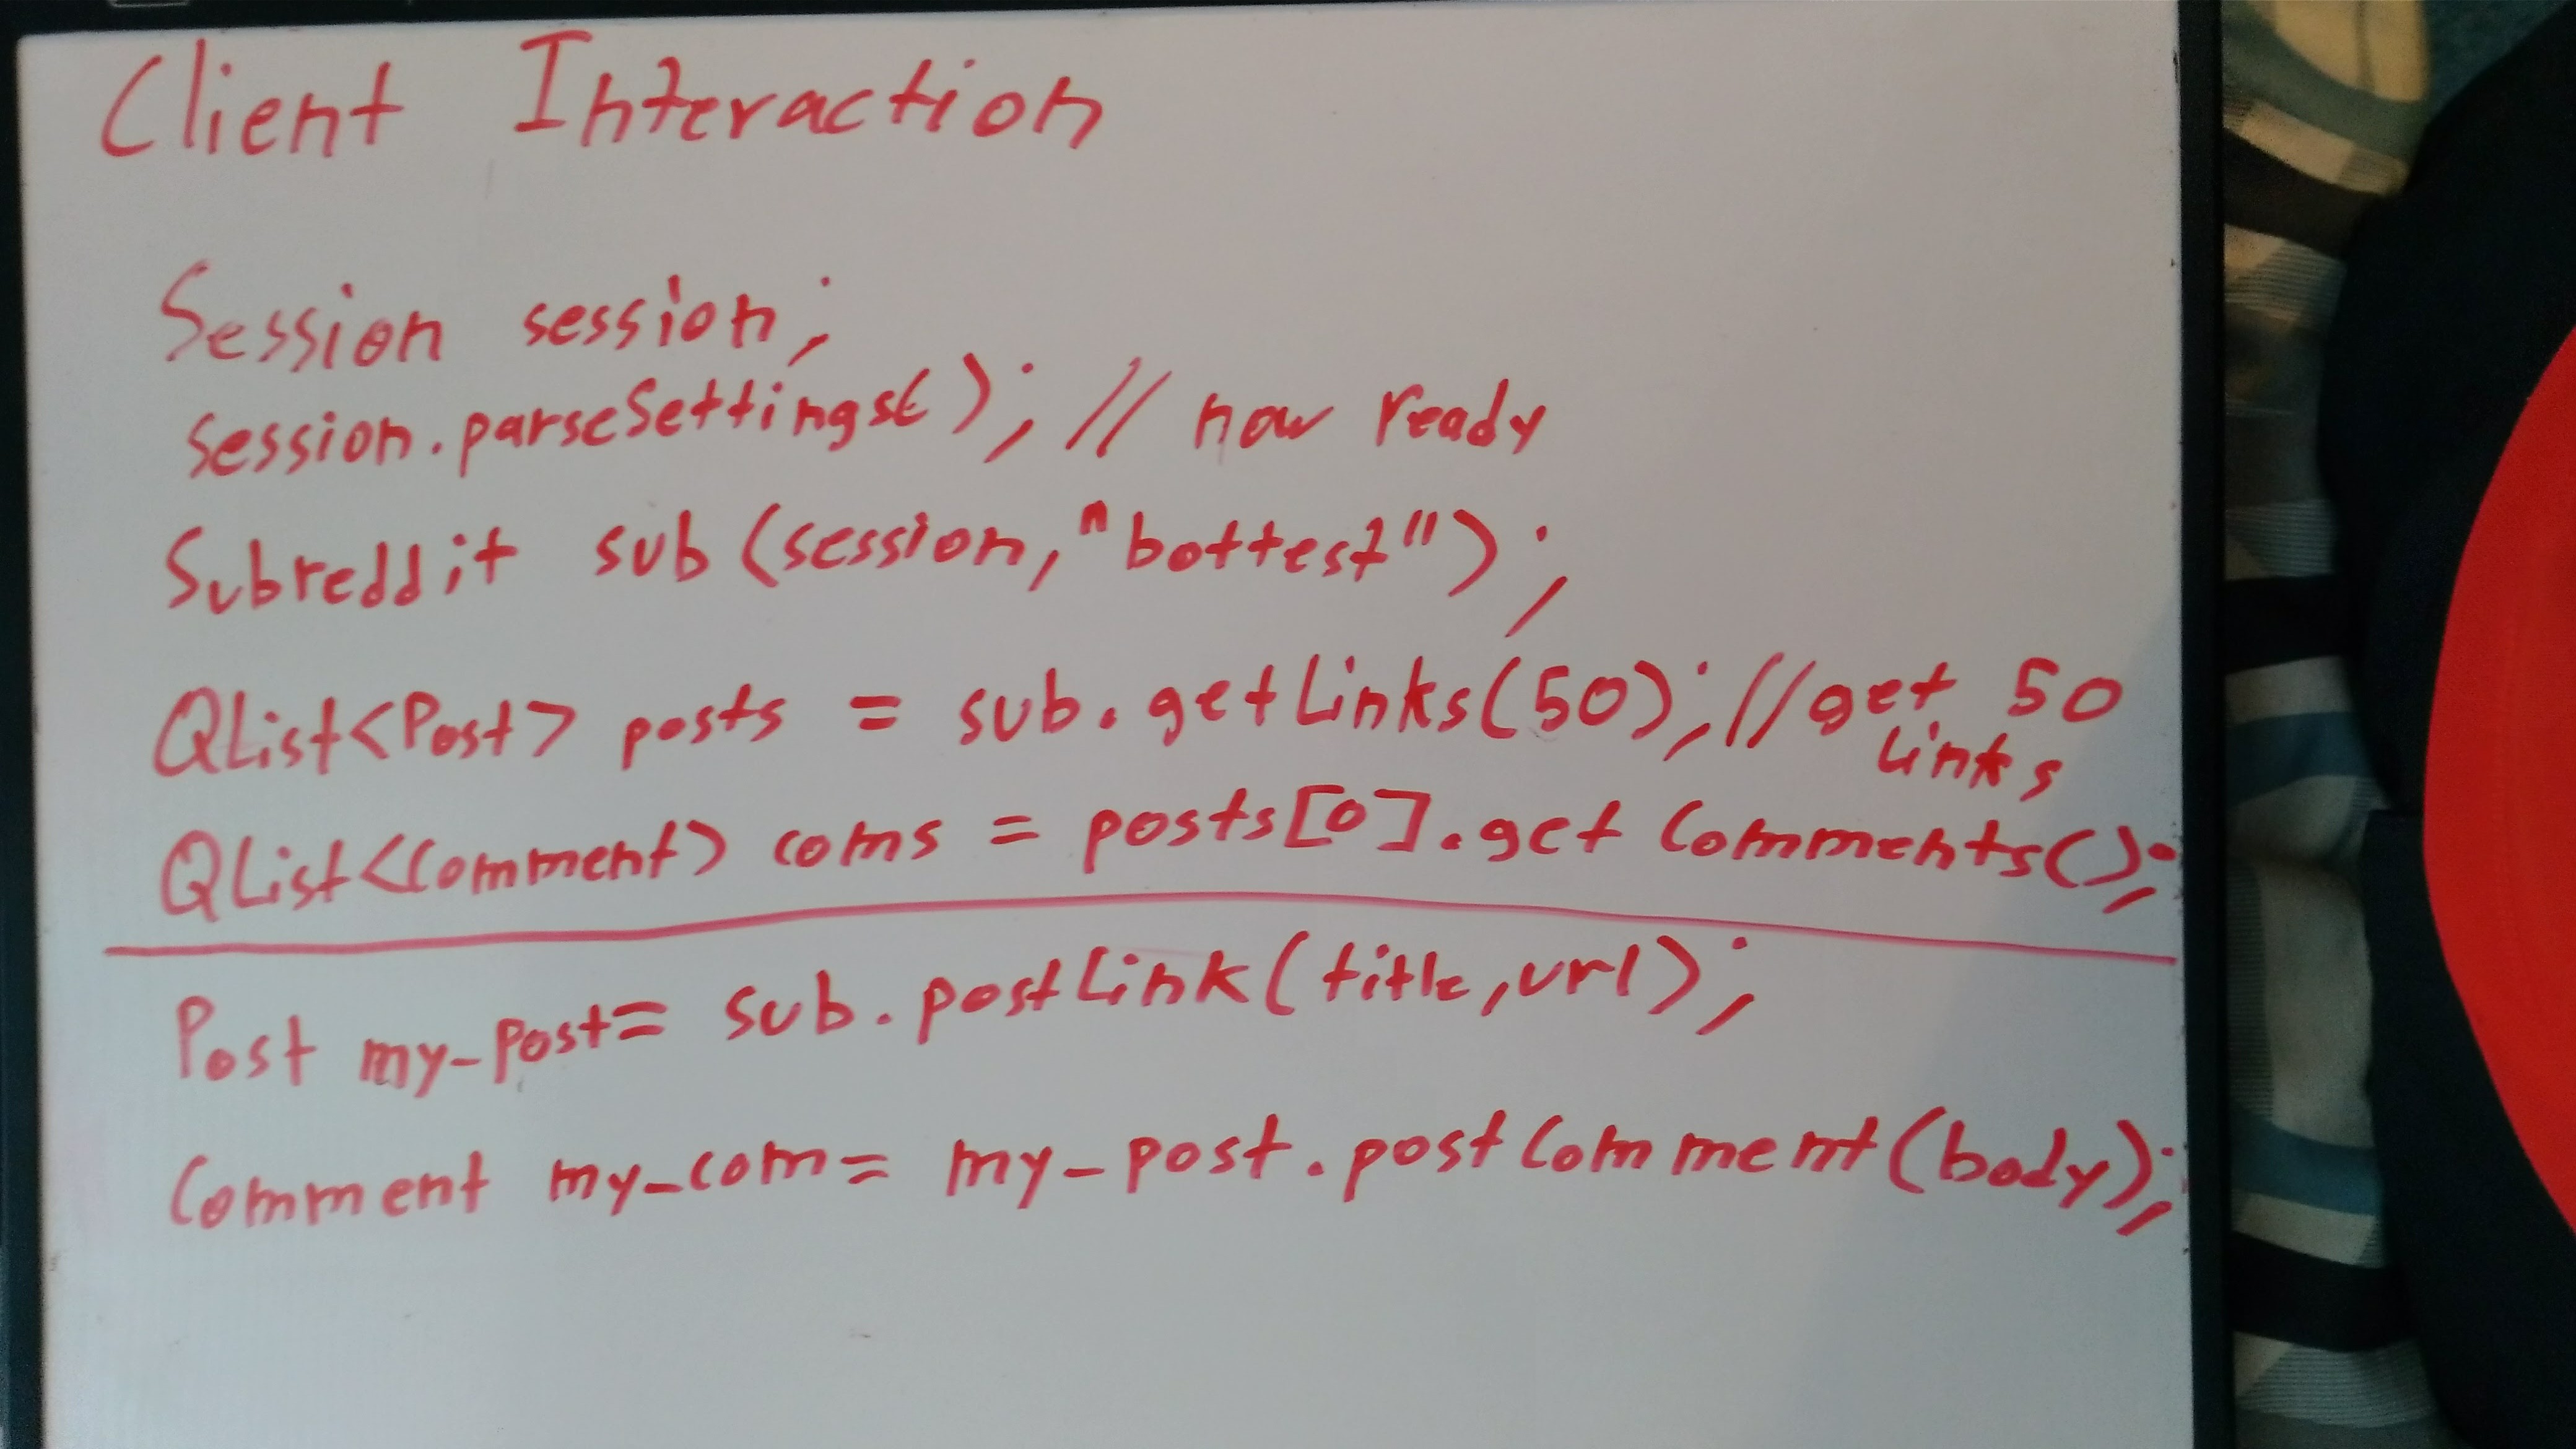 Client Interaction
Session session;
session.parseSettings(); // now ready
Subreddit sub (session, "bottest");
QList<Post> posts = sub.getLinks(50); //get 50
links
QList<Comment> coms = posts[0].getComments();
Post my_post= sub.postLink(title,url);
Comment my_com= my_post.postComment(body);